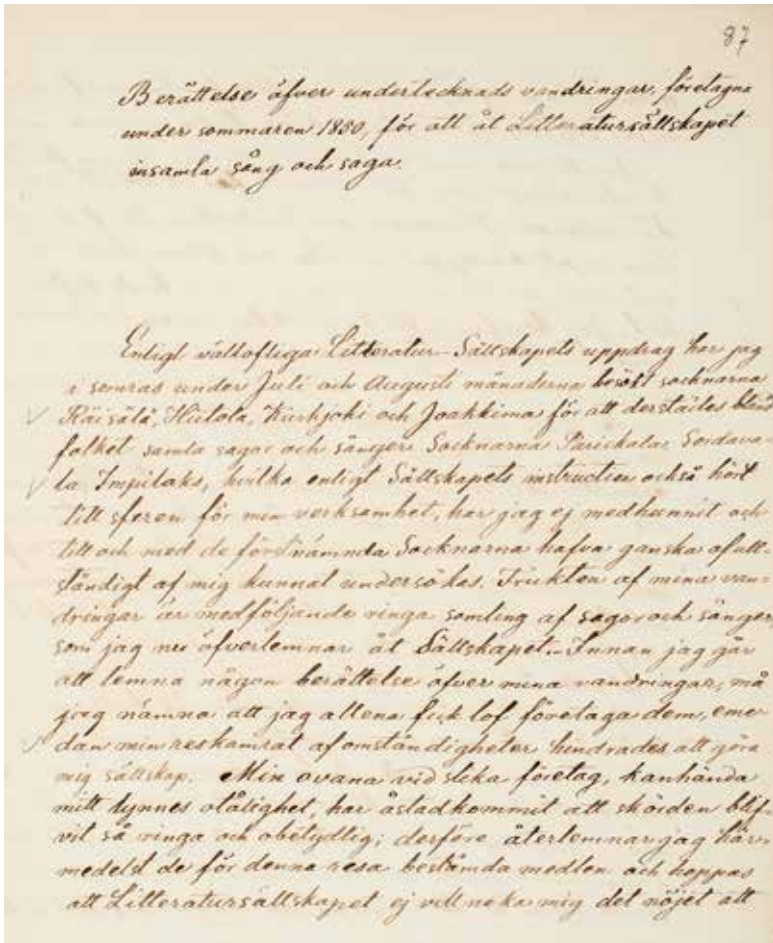 87
Berättelse öfver undertecknads vandringar, företagna
under sommaren 1850, för att åt Litteratursällskapet
insamla sång och saga.
Enligt vällofliga Litteratur-Sällskapets uppdrag har jag
i somras under Juli och Augusti månaderna besökt socknarna
Räisälä, Hiitola, Kurkjoki och Joakkima för att derstädes bland
folket samla sagor och sånger. Socknarna Parickala, Sordava-
la Impilaks, hvilka enligt Sällskapets instruction också hört
till sferen för min verksamhet, har jag ej medhunnit och
till och med de förstnämnda Socknarna hafva ganska ofull-
ständigt af mig kunnat undersökas. Frukten af mina van-
dringar är medföljande ringa samling af sagor och sånger,
som jag nu öfverlemnar åt Sällskapet. Innan jag går
att lemna någon berättelse öfver mina vandringar, må
jag nämna att jag allena fick lof företaga dem, eme-
dan min reskamrat af omständigheter hindrades att göra
mig sällskap. Min ovana vid slika företag, kanhända
mitt lynnes otålighet, har åstadkommit att skörden blif-
vit så ringa och obetydlig; derföre återlemnar jag här-
medelst de för denna resa bestämda medlen och hoppas
att Litteratursällskapet ej vill neka mig det nöjet att